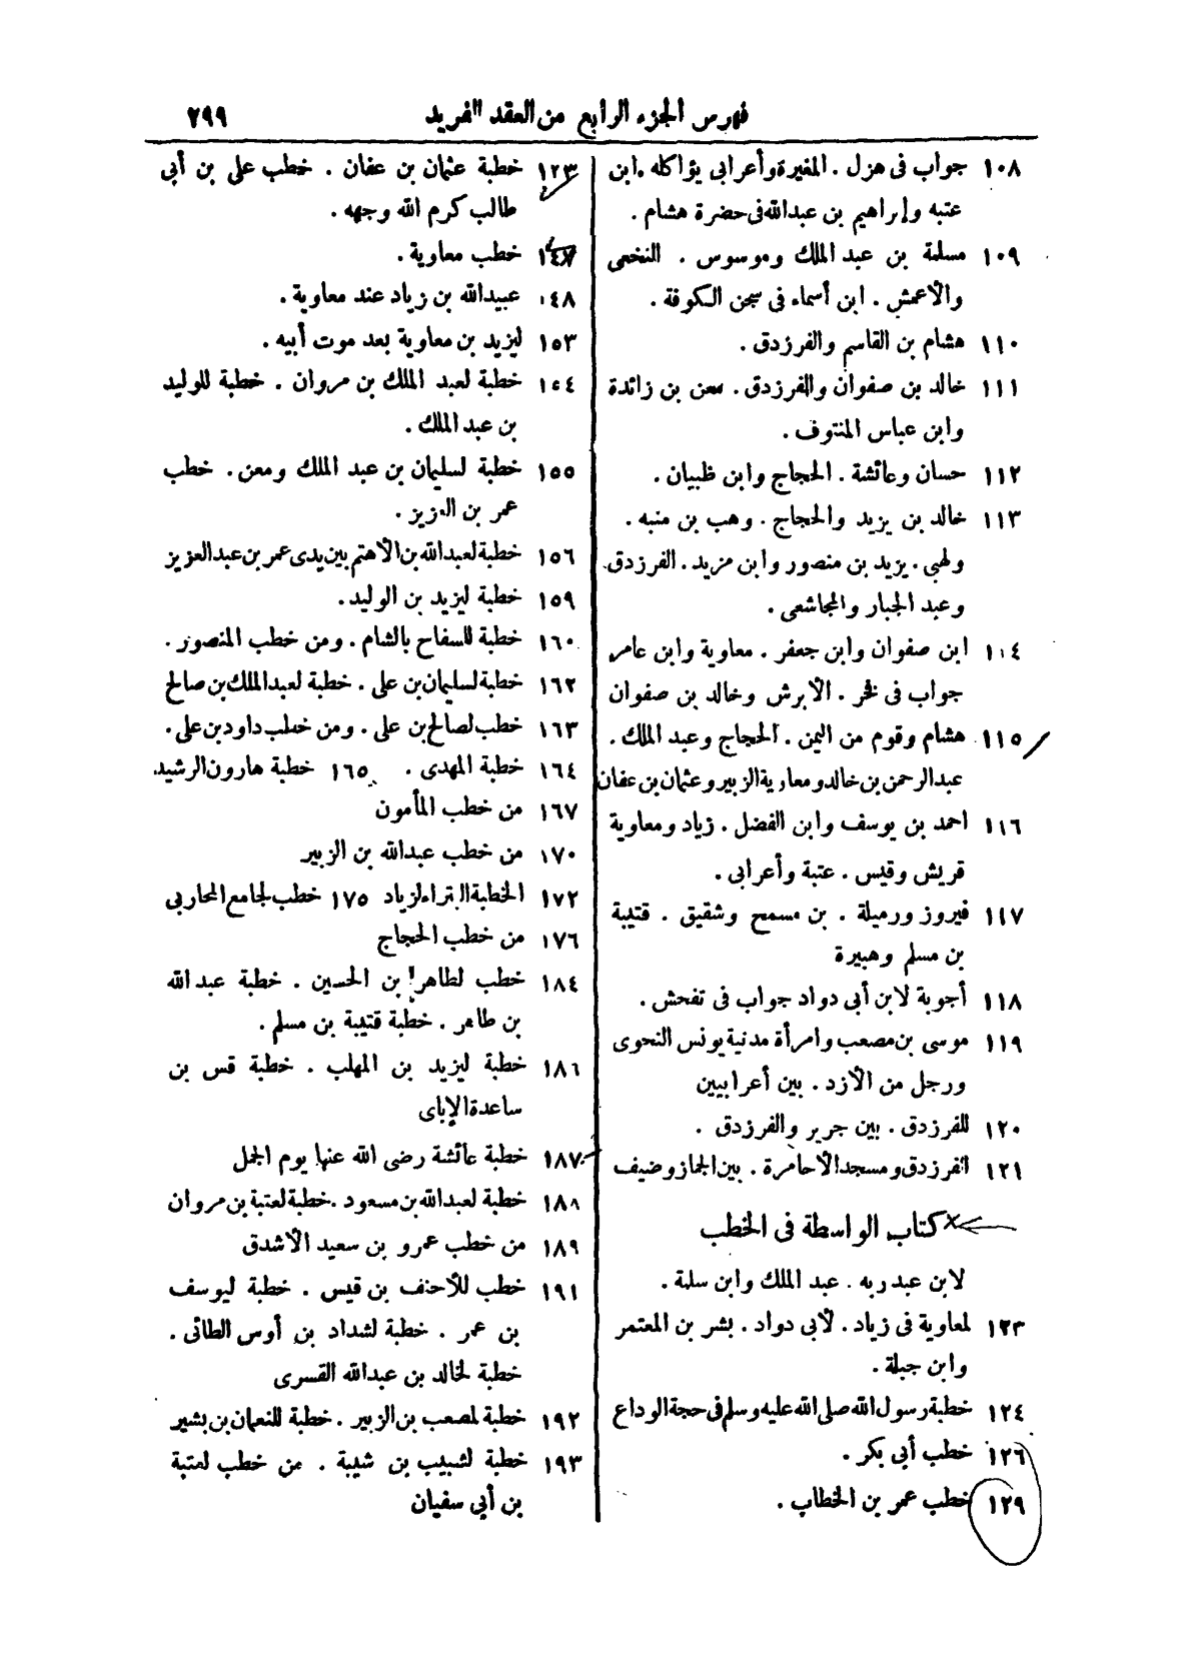 فهرس الجزء الرابع من العقد الفريد ٢٩٩
١٠٨ جواب فى هزل . المغيرة وأعرابى يؤاكله . ابن
عتبه وإبراهيم بن عبدالله فى حضرة هشام .
١٠٩ مسلمة بن عبد الملك وموسوس . النخعى
والأعمش . ابن أسماء فى سجن الكوفة .
١١٠ هشام بن القاسم والفرزدق .
١١١ خالد بن صفوان والفرزدق . معن بن زائدة
وابن عباس المنتوف .
١١٢ حسان وعائشة . الحجاج وابن ظبيان .
١١٣ خالد بن يزيد والحجاج . وهب بن منبه .
ولهبى . يزيد بن منصور وابن مزيد . الفرزدق
وعبد الجبار والمجاشعى .
١١٤ ابن صفوان وابن جعفر . معاوية وابن عامر
جواب فى فخر . الأبرش وخالد بن صفوان
١١٥ هشام وقوم من اليمن . الحجاج وعبد الملك .
عبدالرحمن بن خالد ومعاوية الزبير وعثمان بن عفان
١١٦ احمد بن يوسف وابن الفضل . زياد ومعاوية
قريش وقيس . عتبة وأعرابى .
١١٧ فيروز ورميلة . بن مسمح وشقيق . قتيبة
بن مسلم وهبيرة
١١٨ أجوبة لابن أبى دواد جواب فى تفحش .
١١٩ موسى بن مصعب وامرأة مدنية يونس النحوى
ورجل من الأزد . بين أعرابيين
١٢٠ للفرزدق . بين جرير والفرزدق .
١٢١ الفرزدق ومسجد الأحامرة . بين الجماز وضيف
كتاب الواسطة فى الخطب
لابن عبد ربه . عبد الملك وابن سلمة .
١٢٣ لمعاوية فى زياد . لأبى دواد . بشر بن المعتمر
وابن جبلة .
١٢٤ خطبة رسول الله صلى الله عليه وسلم فى حجة الوداع
١٢٦ خطب أبى بكر .
١٢٩ خطب عمر بن الخطاب .
١٢٣ خطبة عثمان بن عفان . خطب على بن أبى
طالب كرم الله وجهه .
١٤٧ خطب معاوية .
١٤٨ عبيدالله بن زياد عند معاوية .
١٥٣ ليزيد بن معاوية بعد موت أبيه .
١٥٤ خطبة لعبد الملك بن مروان . خطبة للوليد
بن عبد الملك .
١٥٥ خطبة لسليمان بن عبد الملك ومعن . خطب
عمر بن العزيز .
١٥٦ خطبة لعبدالله بن الأهتم بين يدى عمر بن عبد العزيز
١٥٩ خطبة ليزيد بن الوليد .
١٦٠ خطبة للسفاح بالشام . ومن خطب المنصور .
١٦٢ خطبة لسليمان بن على . خطبة لعبد الملك بن صالح
١٦٣ خطب لصالح بن على . ومن خطب داود بن على .
١٦٤ خطبة المهدى . ١٦٥ خطبة هارون الرشيد .
١٦٧ من خطب المأمون
١٧٠ من خطب عبدالله بن الزبير
١٧٢ الخطبة البتراء لزياد ١٧٥ خطب لجامع المحاربى
١٧٦ من خطب الحجاج
١٨٤ خطب لطاهر بن الحسين . خطبة عبد الله
بن طاهر . خطبة قتيبة بن مسلم .
١٨٦ خطبة ليزيد بن المهلب . خطبة قس بن
ساعدة الإياى
١٨٧ خطبة عائشة رضى الله عنها يوم الجمل
١٨٨ خطبة لعبدالله بن مسعود . خطبة لعتبة بن مروان
١٨٩ من خطب عمرو بن سعيد الأشدق
١٩١ خطب للأحنف بن قيس . خطبة ليوسف
بن عمر . خطبة لشداد بن أوس الطائى .
خطبة لخالد بن عبدالله القسرى
١٩٢ خطبة لمصعب بن الزبير . خطبة للنعمان بن بشير
١٩٣ خطبة لشبيب بن شيبة . من خطب لعتبة
بن أبى سفيان